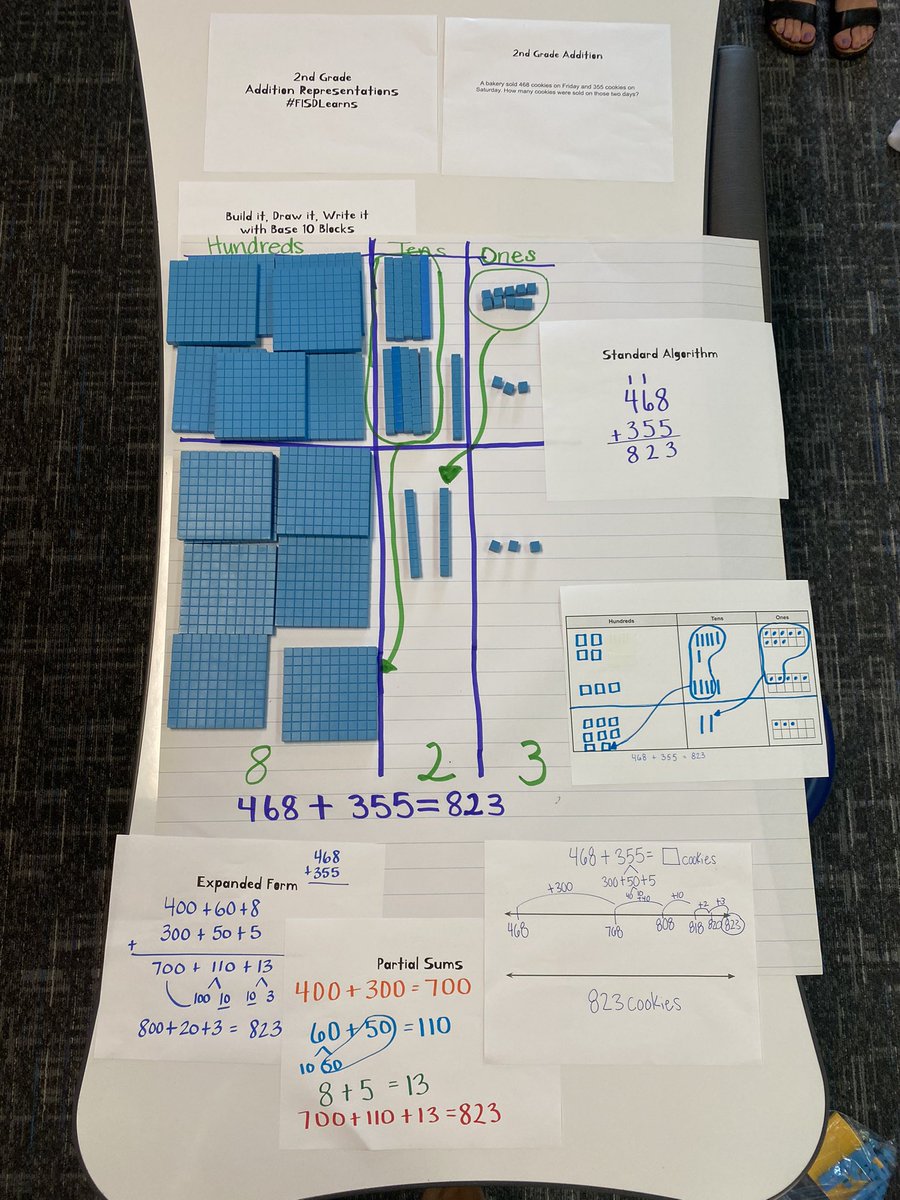 2nd Grade
Addition Representations
#FISDLearns
2nd Grade Addition
A bakery sold 468 cookies on Friday and 355 cookies on
Saturday. How many cookies were sold on those two days?
Build it, Draw it, Write it
with Base 10 Blocks
Hundreds Tens Ones
8 2 3
468 + 355 = 823
Standard Algorithm
1 1
468
+355
823
Hundreds Tens Ones
468 + 355 = 823
Expanded Form
468
+355
400 + 60 + 8
+ 300 + 50 + 5
700 + 110 + 13
100 10 10 3
800 + 20 + 3 = 823
Partial Sums
400 + 300 = 700
60 + 50 = 110
10 50
8 + 5 = 13
700 + 110 + 13 = 823
468 + 355 = □ cookies
300 + 50 + 5
40 10
+300 +40 +10 +2 +3
468 768 808 818 820 823
823 cookies